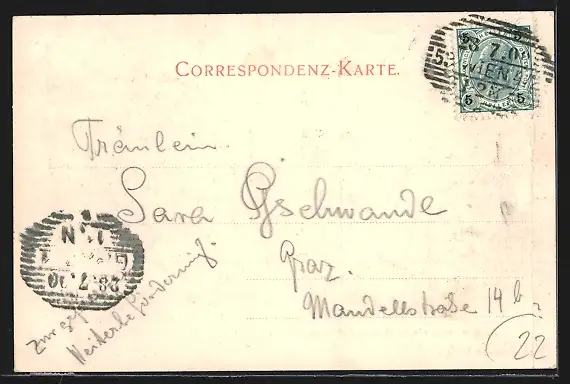 CORRESPONDENZ-KARTE.
5 5
Fräulein
Sara Gschwandl
Graz.
Mandellstraße 14 b
zur gef.
Weiterbeförderung.
22